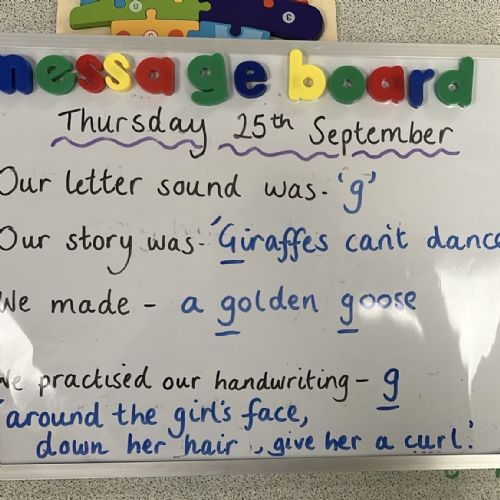 message board
Thursday 25th September
Our letter sound was - 'g'
Our story was - 'Giraffes can't dance
We made - a golden goose
We practised our handwriting - g
'around the girl's face,
down her hair, give her a curl.'